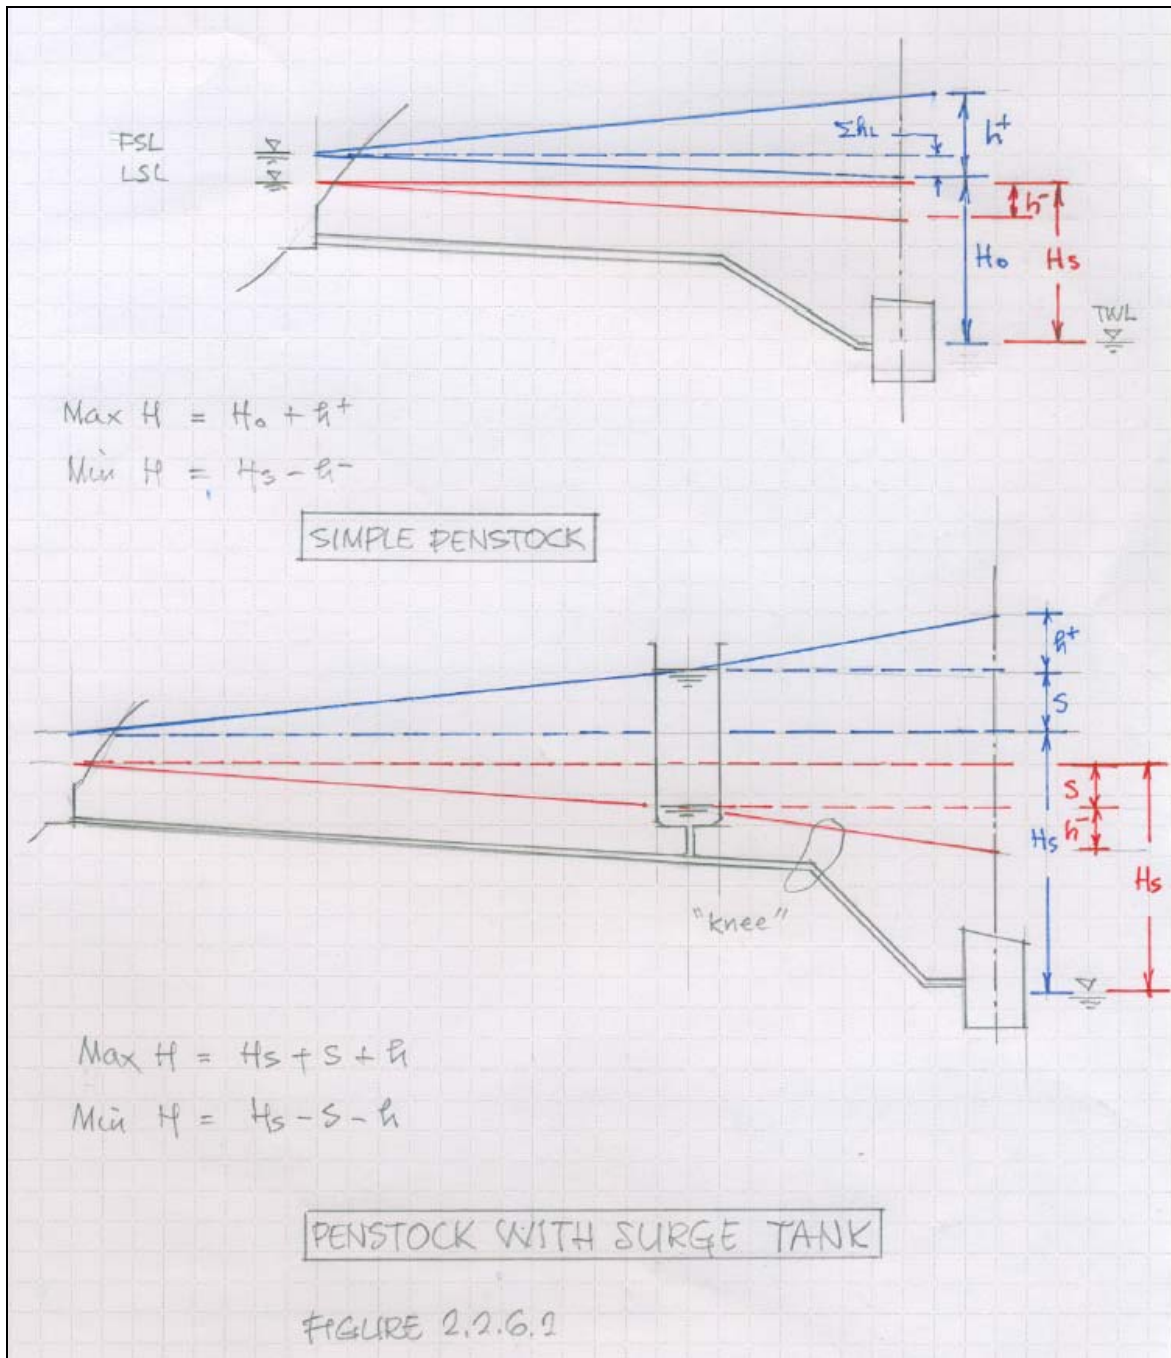 FSL
LSL
ΣhL
h+
h-
Ho
Hs
TWL
Max H = Ho + h+
Min H = Hs - h-
SIMPLE PENSTOCK
h+
S
S
h-
Hs
Hs
"knee"
Max H = Hs + S + h
Min H = Hs - S - h
PENSTOCK WITH SURGE TANK
FIGURE 2.2.6.2